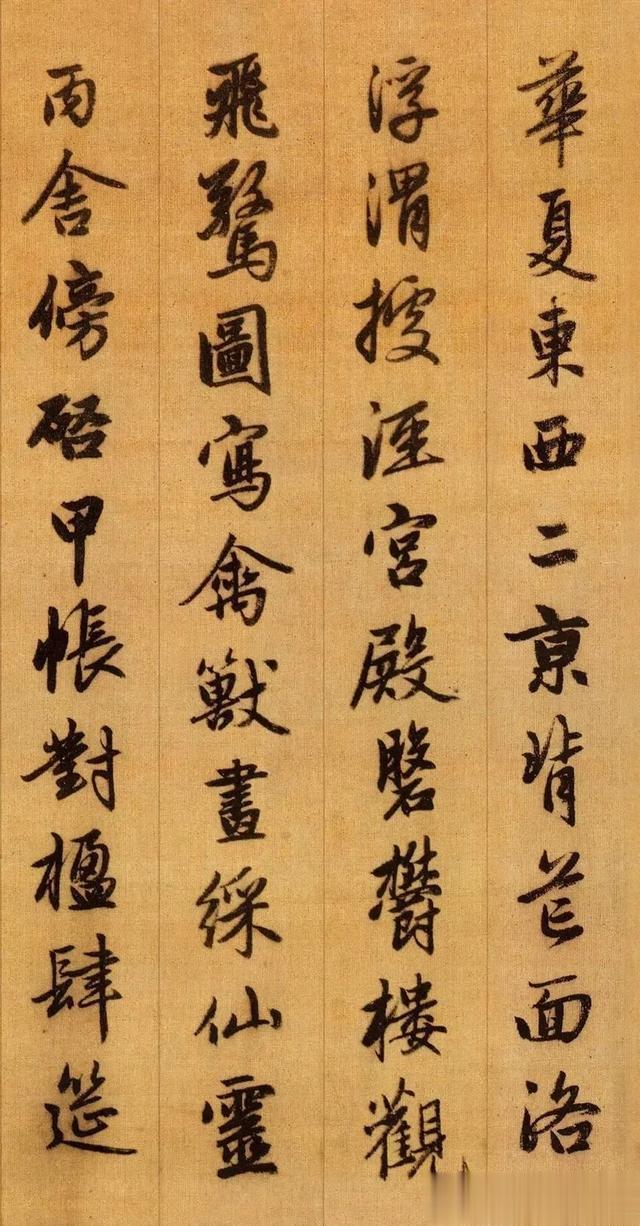 華夏東西二亰背芒面洛
浮渭據涇宮殿磐欝樓觀
飛驚圖寫禽獸畫綵仙靈
丙舍傍啓甲帳對楹肆筵